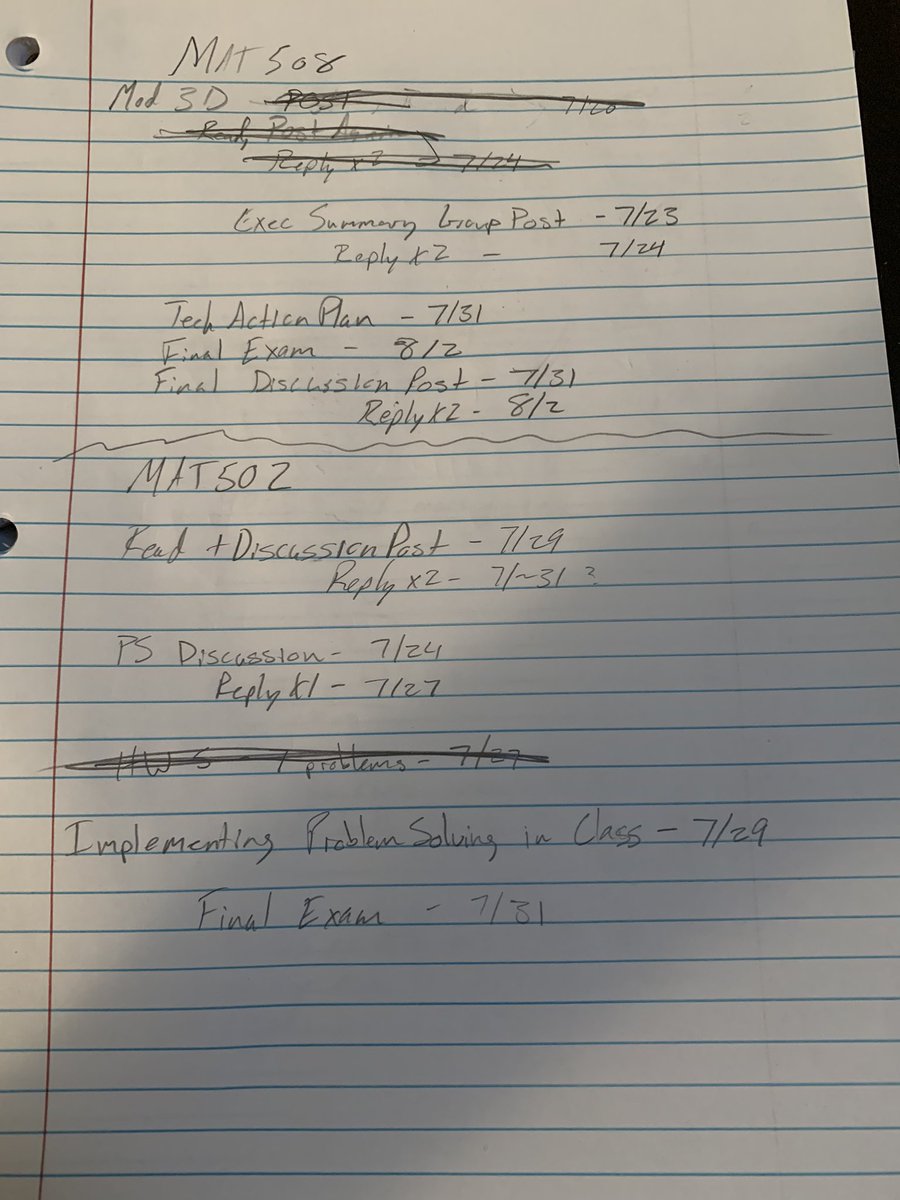 MAT 508
Mod 3D POST 7/20
Read, Post Again
Reply x2 - 7/24
Exec Summary Group Post - 7/23
Reply x2 - 7/24
Tech Action Plan - 7/31
Final Exam - 8/2
Final Discussion Post - 7/31
Reply x2 - 8/2
MAT 502
Read + Discussion Post - 7/29
Reply x2 - 7/~31 ?
PS Discussion - 7/24
Reply x1 - 7/27
HW 5 - 7 problems - 7/27
Implementing Problem Solving in Class - 7/29
Final Exam - 7/31